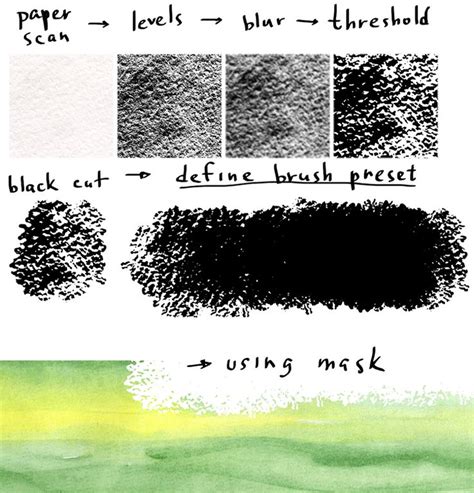 paper scan → levels → blur → threshold
black cut → define brush preset
→ using mask